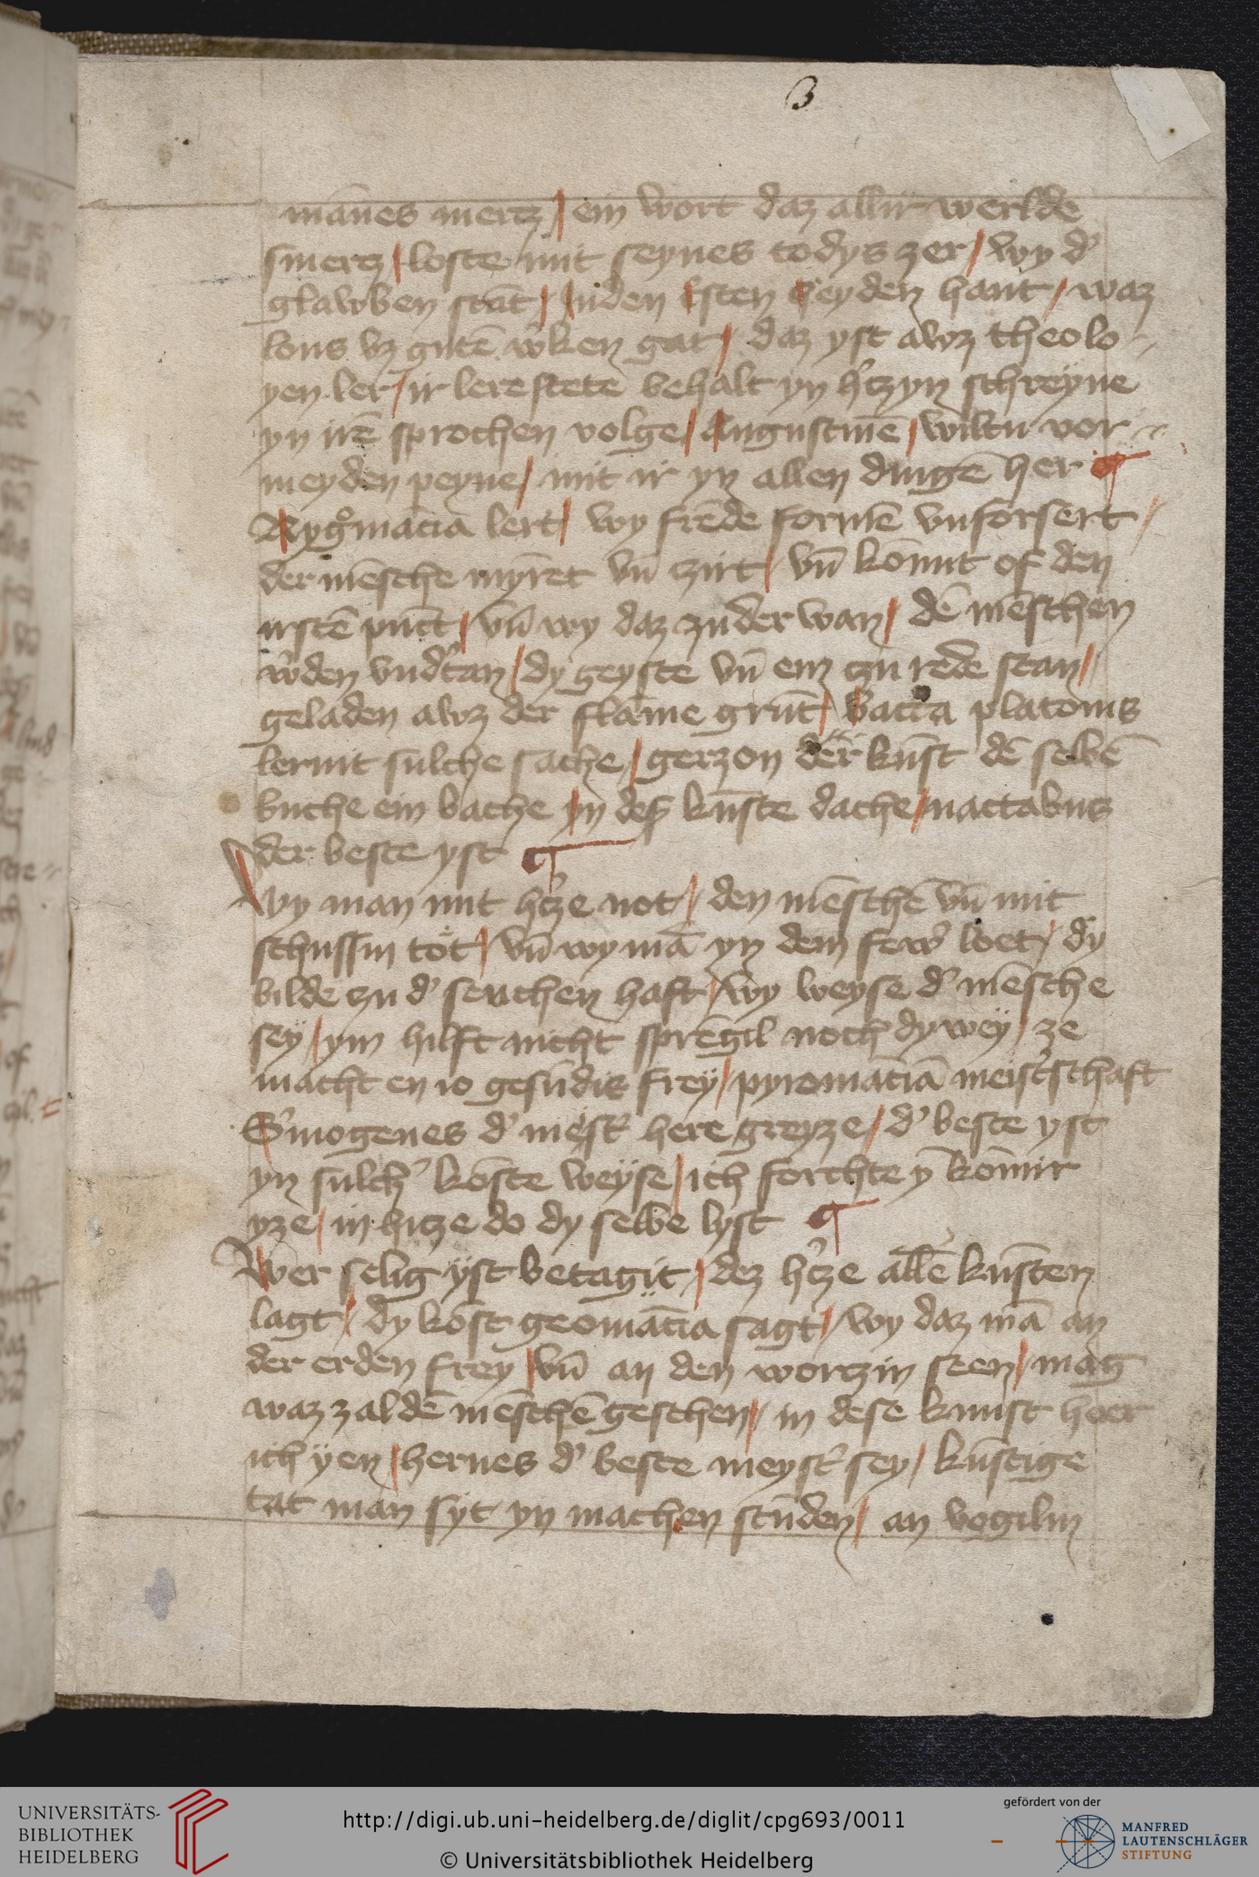 3
mānes mertz / ein wort daz allir werlde
smertz / loste mit seynes todys zer / wy d'
glawben stāt / Juden Cristen Heyden hant / waz
lons vz gutē w'ken gat / daz yst awz theolo
yen ler / ir lere stete behalt yn h'czyn schreyne
yn irē sprochen volge / Augustinē / wiltu vor
meyden peyne / mit ir yn allen dingē her
Nyg'mācia lert / wy frēde formē vnforsert
der mēsche myret vn̄ czirt / vn̄ kōmt of den
irstē pūct / vn̄ wy daz zu der wan / dē mēschen
w'den vnd'tan / dy geyste vn̄ em czu rede stan /
geladen awz der flāme grūt / bacta platonis
lernit sulche sache / gerzon der kūst dē selbē
buche ein bache / yn des' kūste dache / nactabus
der beste yst
Wy man mit h'cze not / den mēschē vn̄ mit
schussin tot / vn̄ wy mā yn dem fewr loet / dy
bilde czu d' suchen haft / wy weyse d' mēsche
sey / ym hilft nicht sprēgil noch dy wey / ze
macht en io gesūdis frey / pyromāciā meist'schaft
H'mogenes d' mest' here greyze / d' beste yst
yn sulch' kōste weyse / ich forchte y kōmir
yze / in hicze do dy selbe lyst
Wer selig yst betagit / dez h'cze allē kūsten
lagt / dy kōst geomācia sagt / wy daz mā an
der erden frey / vn̄ an den wortzin seen / mag
waz zal dē mēschē geschen / in dese kunst hoer
ich yen / hernes d' beste meyst' sey / kūstige
tat man syt yn machen stūden / an vogilin
UNIVERSITÄTS-
BIBLIOTHEK
HEIDELBERG
http://digi.ub.uni-heidelberg.de/diglit/cpg693/0011
© Universitätsbibliothek Heidelberg
gefördert von der
MANFRED
LAUTENSCHLÄGER
STIFTUNG